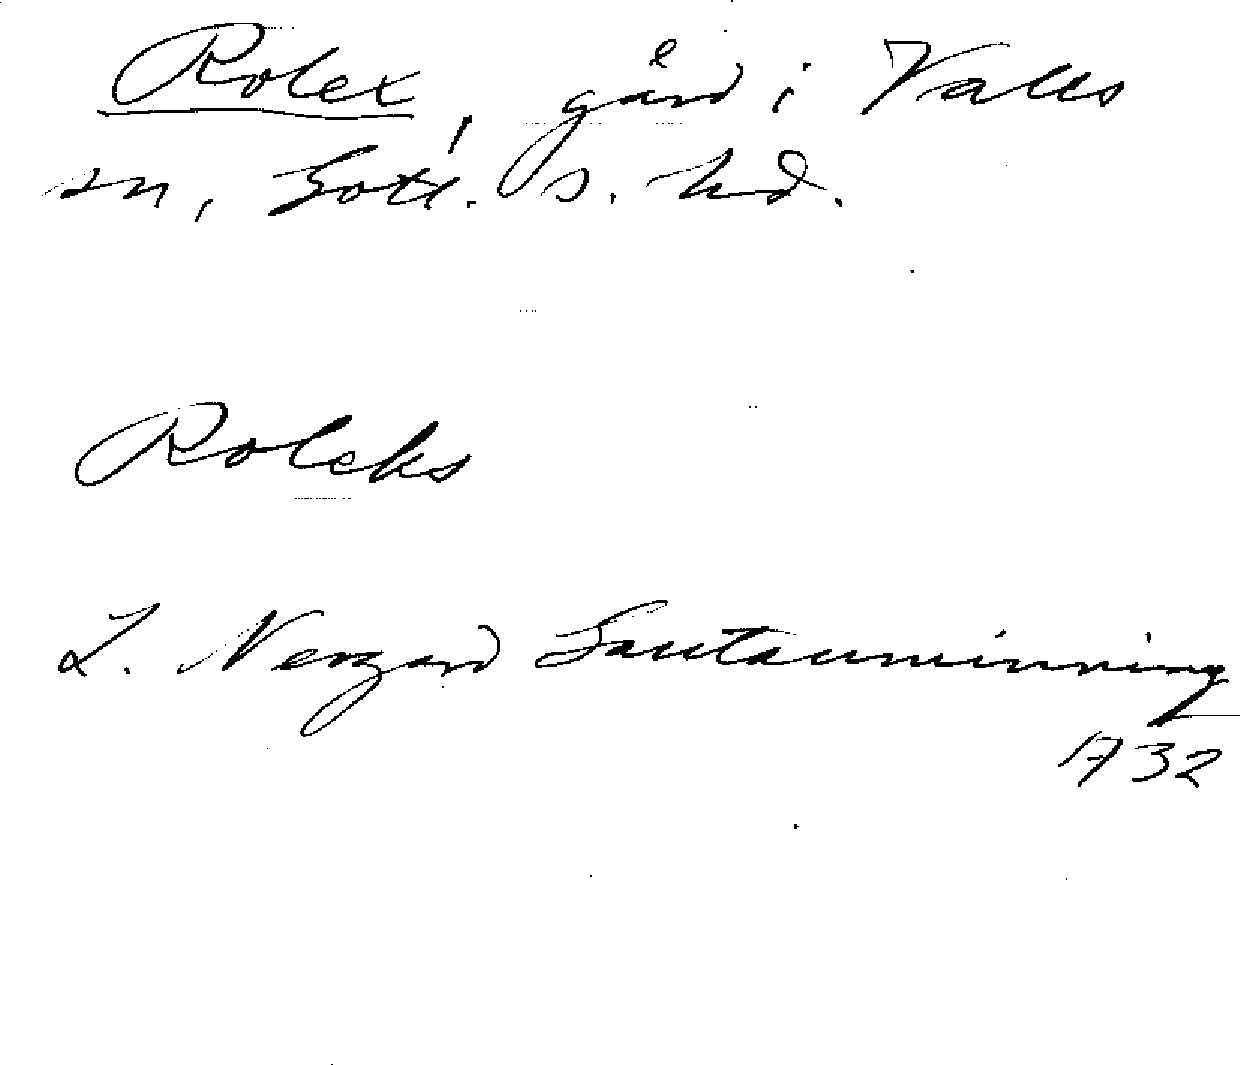 Rolex, gård i Valls
sn, Gotl. s. hd.
Roleks
L. Nergard Gautauminning
1732